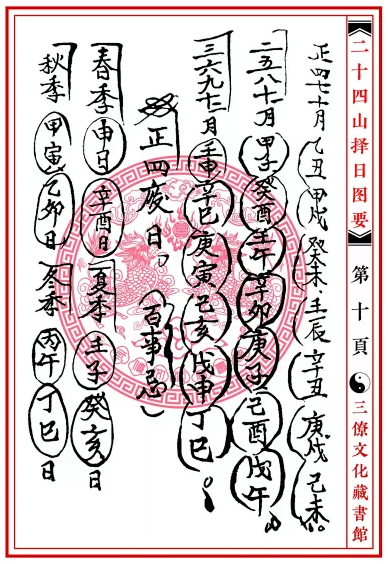 二十四山择日图要 第十頁 三僚文化藏書館
正四七十月 乙丑 甲戌 癸未 壬辰 辛丑 庚戌 己未。
二五八十一月 甲子 癸酉 壬午 辛卯 庚子 己酉 戊午。
三六九十二月 壬申 辛巳 庚寅 己亥 戊申 丁巳。
正四废日。(百事忌)
春季 申日 辛酉日 夏季 壬子 癸亥日
秋季 甲寅 乙卯日 冬季 丙午 丁巳日